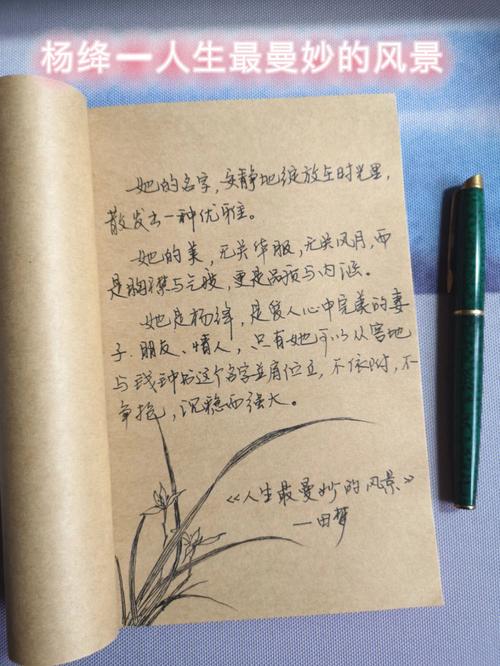 杨绛一人生最曼妙的风景
她的名字，安静地绽放在时光里，
散发出一种优雅。
她的美，无关华服，无关风月，而
是胸襟与气度，更是品质与内涵。
她是杨绛，是爱人心中完美的妻
子、朋友、情人，只有她可以从容地
与钱钟书这个名字并肩位立，不依附，不
争抢，沉稳而强大。
《人生最曼妙的风景》
一田梦